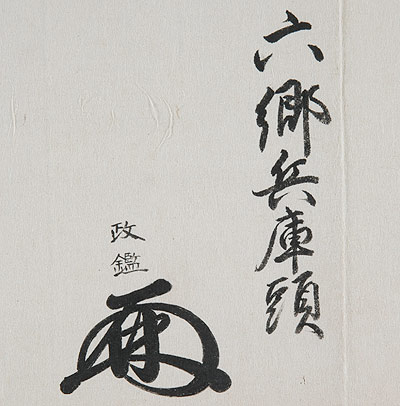 六郷兵庫頭
政鑑